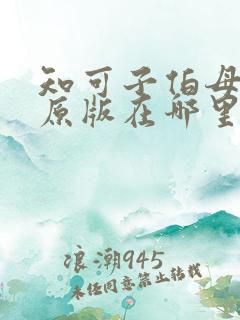 知可子伯母
原版在哪里
浪潮945
未经同意禁止转载